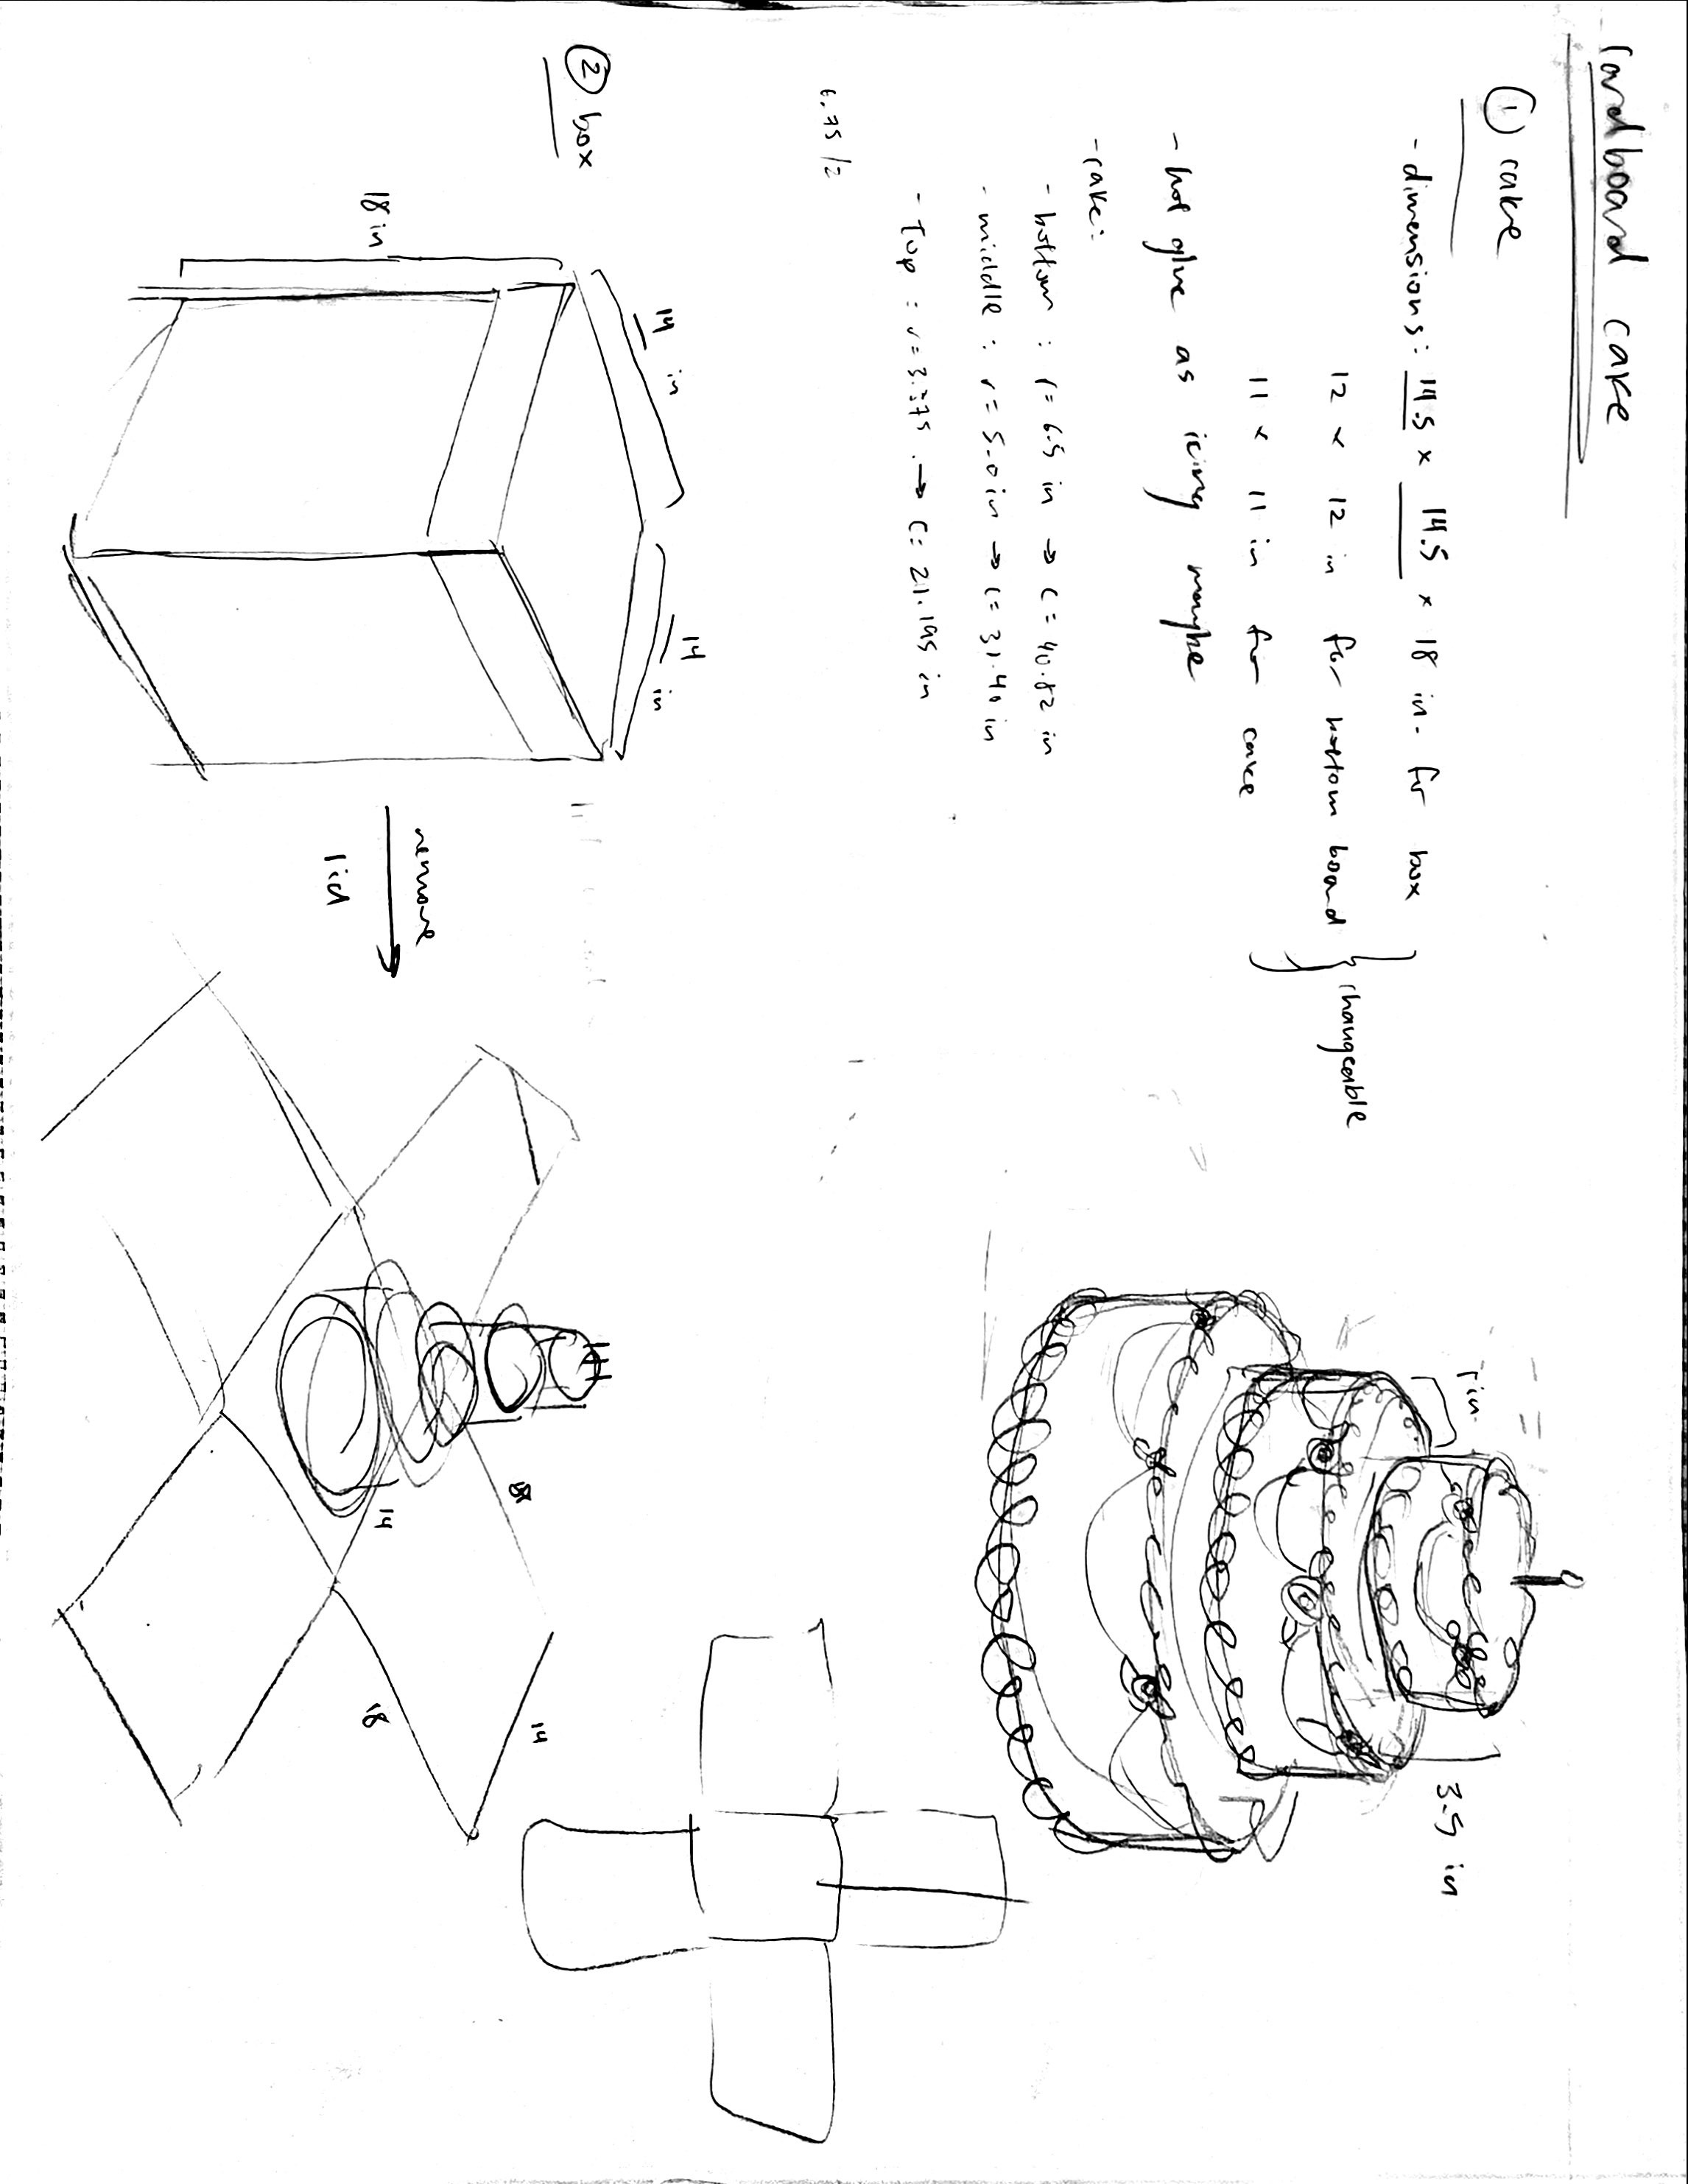 cardboard cake
① cake
- dimensions: 14.5 x 14.5 x 18 in. for box
12 x 12 in for bottom board
11 x 11 in for cake
changeable
- hot glue as icing maybe
- cake:
- bottom : r = 6.5 in → C = 40.82 in
- middle : r = 5.0 in → C = 31.40 in
- Top : r = 3.375 → C = 21.195 in
6.75/2
1 in.
3.5 in
② box
14 in
14 in
18 in
remove
lid
18
14
14
18